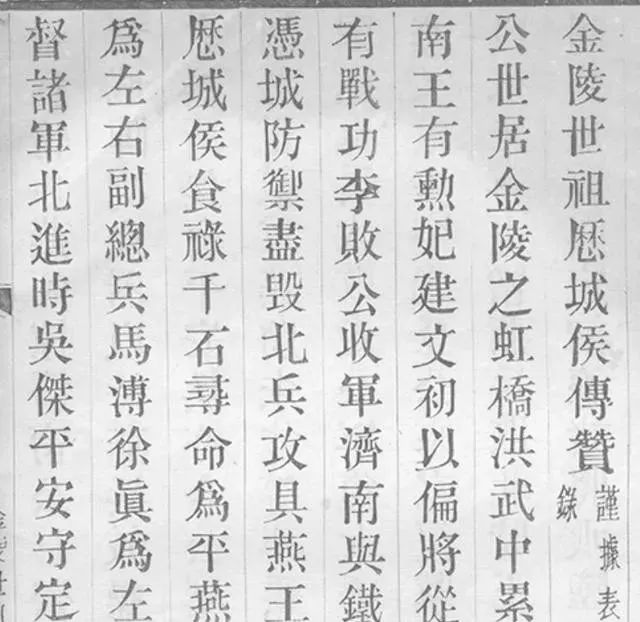 金陵世祖厯城侯傳贊
謹據表
錄
公世居金陵之虹橋洪武中累
南王有勲妃建文初以偏將從
有戰功李敗公收軍濟南與鐵
憑城防禦盡毀北兵攻具燕王
厯城侯食祿千石尋命爲平燕
爲左右副總兵馬溥徐眞爲左
督諸軍北進時吳傑平安守定